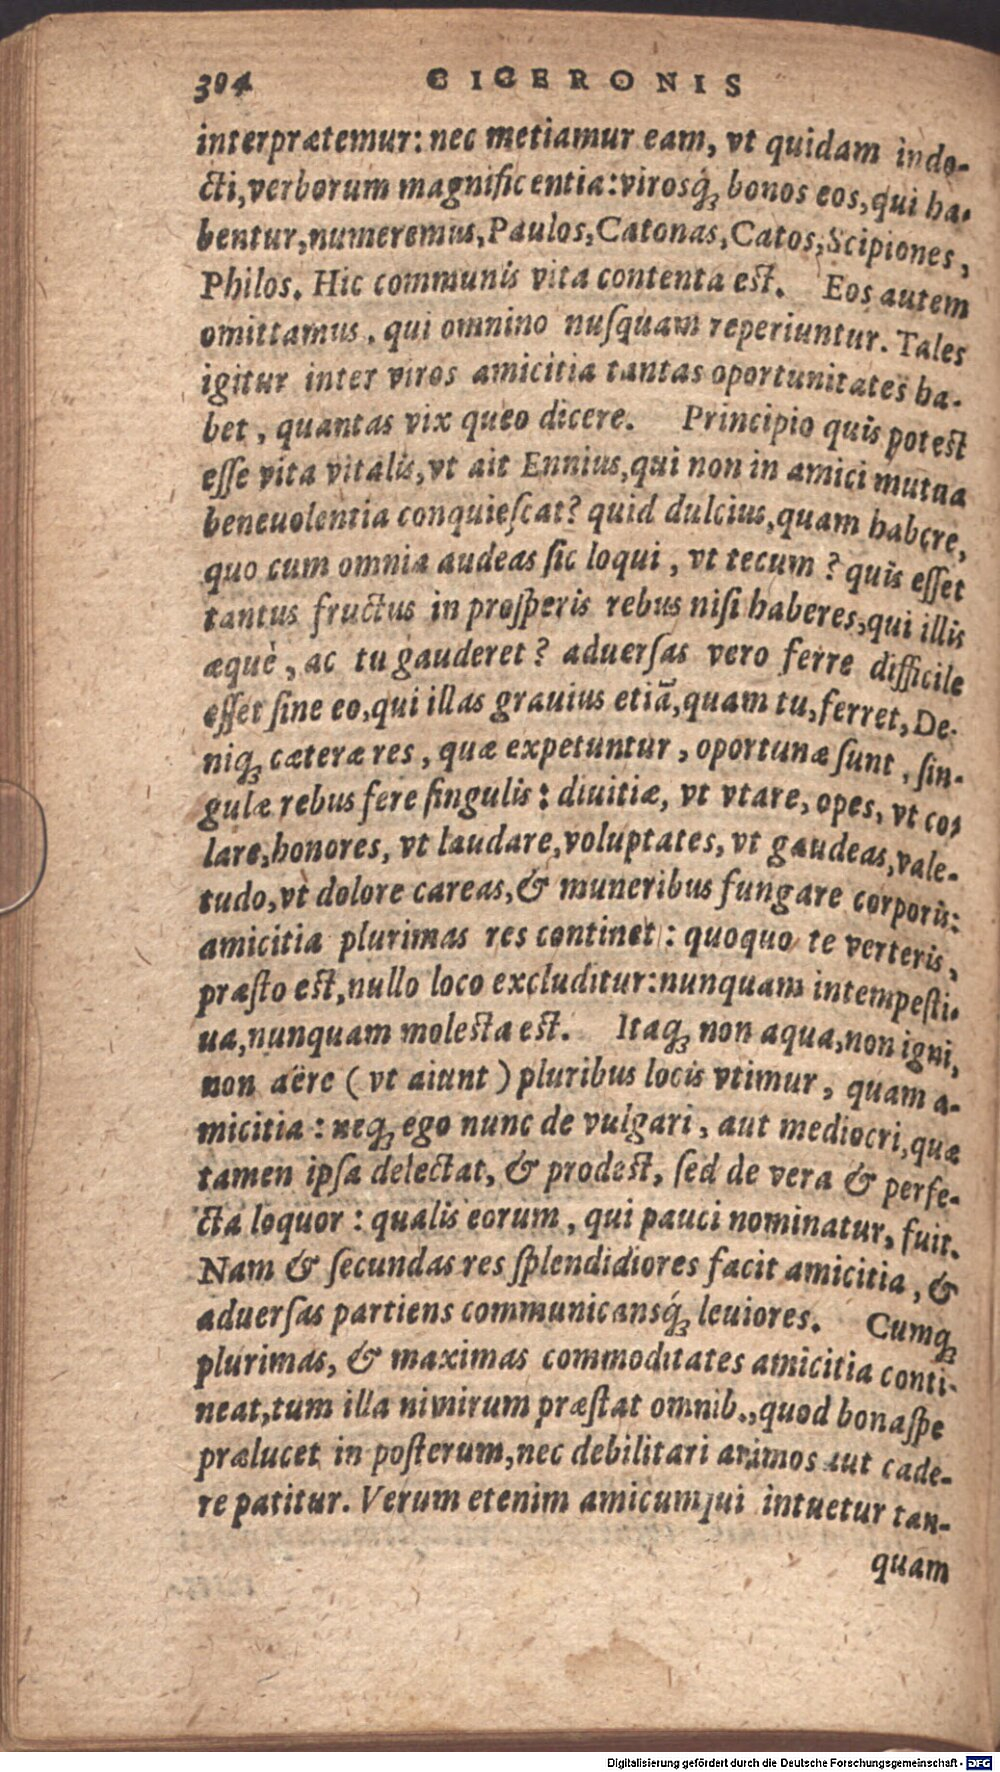 394 CICERONIS
interprætemur: nec metiamur eam, vt quidam indo-
cti, verborum magnificentia: virosq́ꝫ bonos eos, qui ha-
bentur, numeremus, Paulos, Catonas, Catos, Scipiones,
Philos. Hic communis vita contenta est. Eos autem
omittamus, qui omnino nuſquam reperiuntur. Tales
igitur inter viros amicitia tantas oportunitates ha-
bet, quantas vix queo dicere. Principio quis potest
eſſe vita vitalis, vt ait Ennius, qui non in amici mutua
beneuolentia conquieſcat? quid dulcius, quam habere,
quo cum omnia audeas ſic loqui, vt tecum? quis eſſet
tantus fructus in proſperis rebus niſi haberes, qui illis
æquè, ac tu gauderet? aduerſas vero ferre difficile
eſſet ſine eo, qui illas grauius etiā, quam tu, ferret, De-
niqꝫ cæteræ res, quæ expetuntur, oportunæ ſunt, ſin-
gulæ rebus fere ſingulis: diuitiæ, vt vtare, opes, vt co-
lare, honores, vt laudare, voluptates, vt gaudeas, vale-
tudo, vt dolore careas, & muneribus fungare corporis:
amicitia plurimas res continet: quoquo te verteris,
præſto est, nullo loco excluditur: nunquam intempeſti-
ua, nunquam molesta est. Itaqꝫ non aqua, non igni,
non aëre (vt aiunt) pluribus locis vtimur, quam a-
micitia: neqꝫ ego nunc de vulgari, aut mediocri, quæ
tamen ipſa delectat, & prodest, ſed de vera & perfe-
cta loquor: qualis eorum, qui pauci nominatur, fuit.
Nam & ſecundas res ſplendidiores facit amicitia, &
aduerſas partiens communicansq́ꝫ leuiores. Cumqꝫ
plurimas, & maximas commoditates amicitia conti-
neat, tum illa nimirum præſtat omnib., quod bona ſpe
prælucet in poſterum, nec debilitari animos aut cade-
re patitur. Verum etenim amicum qui intuetur tan-
quam
Digitalisierung gefördert durch die Deutsche Forschungsgemeinschaft - DFG